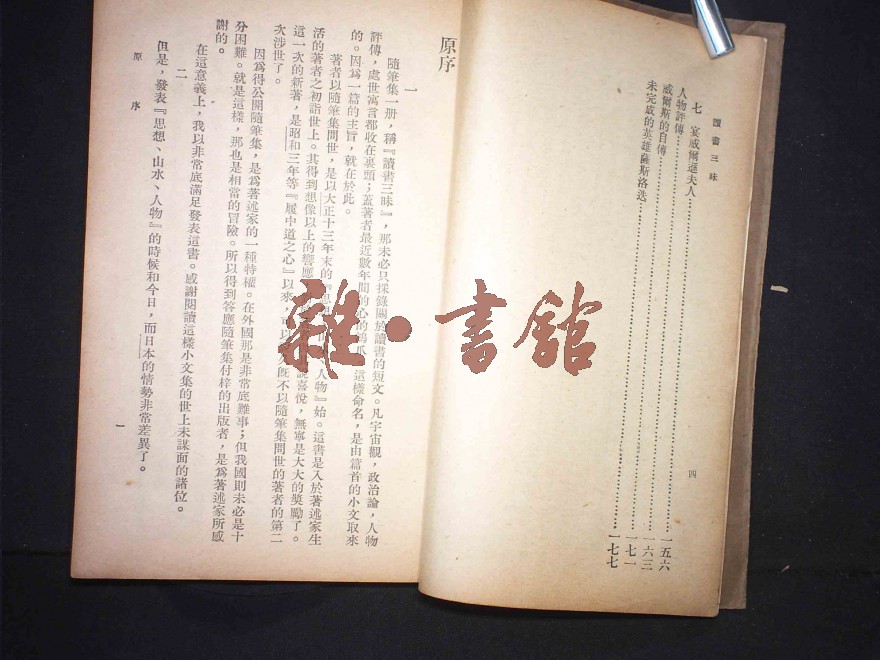 讀書三昧
四
七 宴威爾遜夫人……一五六
人物評傳……一六三
威爾斯的自傳……一七一
未完成的英雄薩斯洛选……一七七
原序
一
隨筆集一册，稱『讀書三昧』，那未必只採錄關於讀書的短文。凡宇宙觀，政治論，人物
評傳，處世寓言都收在裏頭；蓋著者最近數年間的心的 這樣命名，是由篇首的小文取來
的。因爲一篇的主旨，就在於此。
著者以隨筆集問世，是以大正十三年末的『思 人物』始。這書是入於著述家生
活的著者之初詣世上。其得到想像以上的響應 說喜悅，無寧是大大的獎勵了。
這一次的新著，是昭和三年等『履中道之心』以來，可以 旣不以隨筆集問世的著者的第二
次涉世了。
因爲得公開隨筆集，是爲著述家的一種特權。在外國那是非常底難事；但我國則未必是十
分困難。就是這樣，那也是相當的冒險。所以得到答應隨筆集付梓的出版者，是爲著述家所感
謝的。
在這意義上，我以非常底滿足發表這書。感謝閱讀這樣小文集的世上未謀面的諸位。
二
但是，發表『思想、山水、人物』的時候和今日，而日本的情勢非常差異了。
原序
一
雜·書館